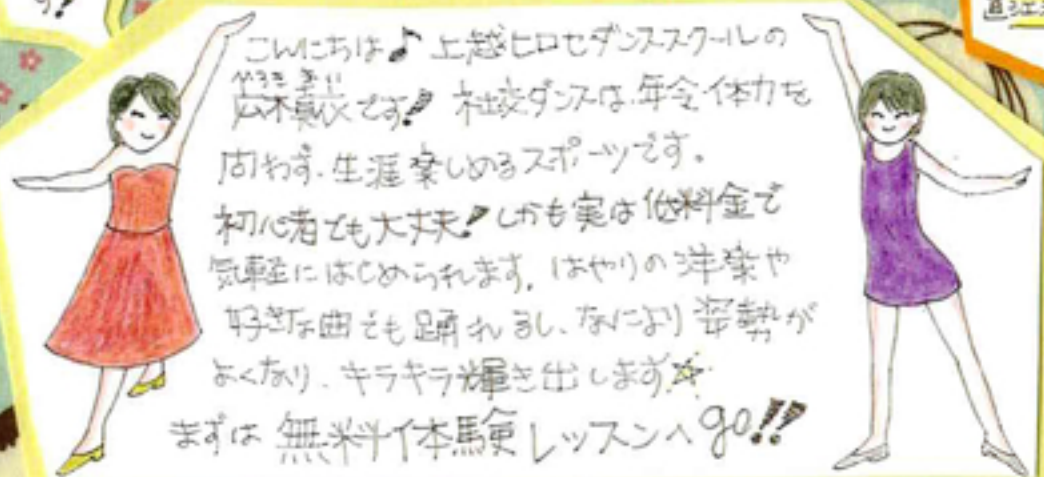 す!
こんにちは♪ 上越ヒロセダンススクールの
です! 社交ダンスは、年令体力を
問わず、生涯楽しめるスポーツです。
初心者でも大丈夫!しかも実は低料金で
気軽にはじめられます。はやりの洋楽や
好きな曲でも踊れるし、なにより姿勢が
よくなり、キラキラ輝き出します☆
まずは 無料体験レッスンへ go!!